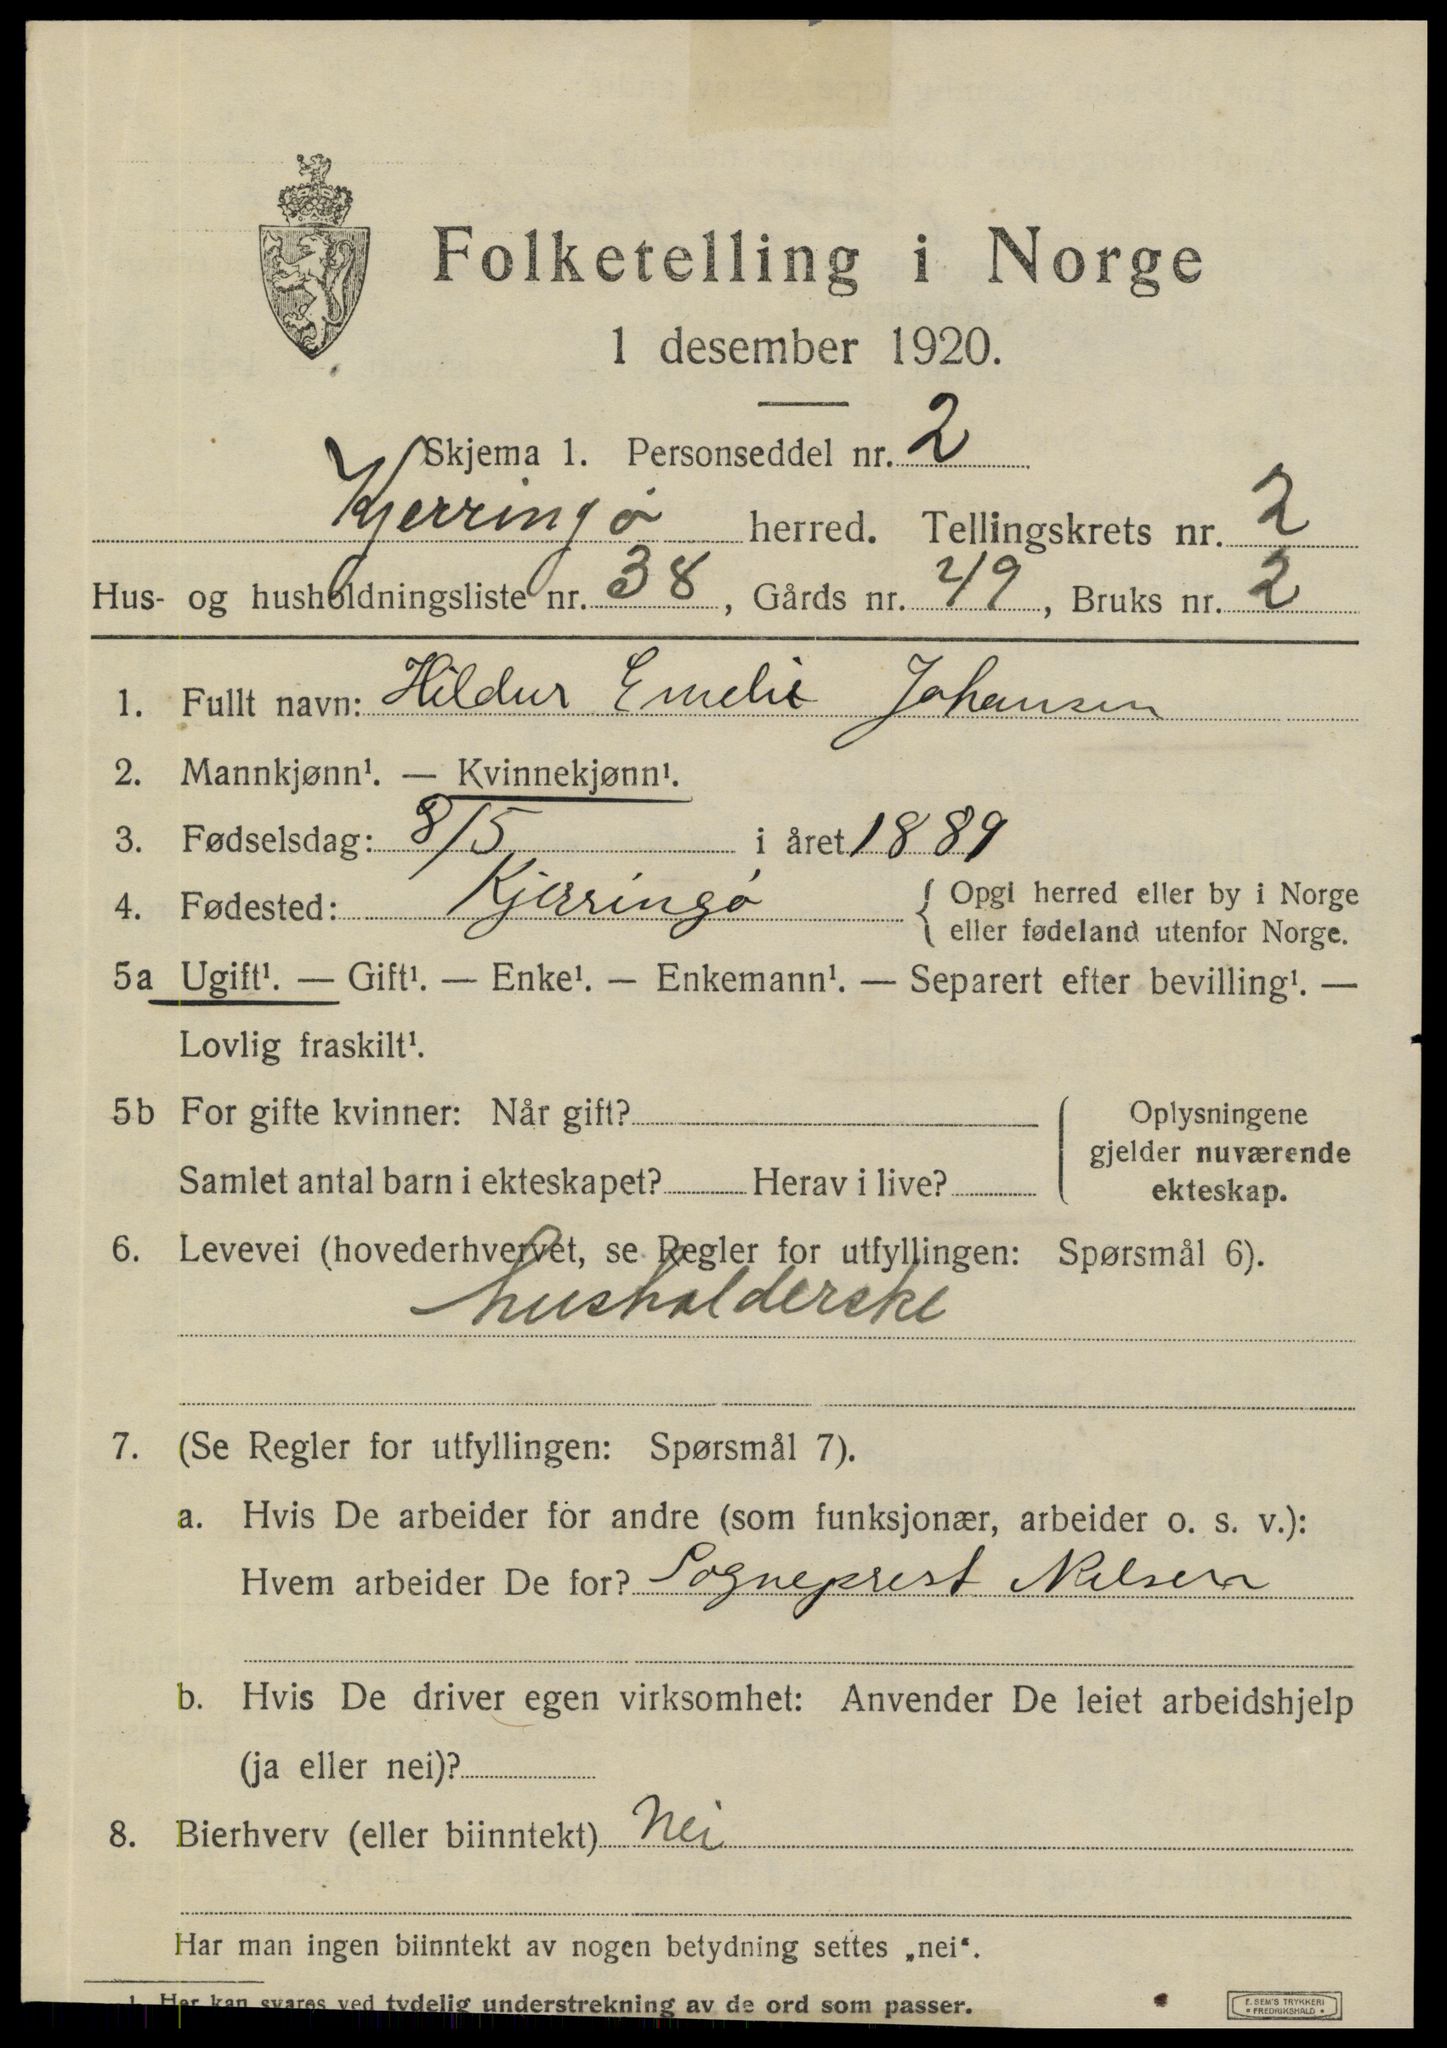 Folketelling i Norge
1 desember 1920.
Skjema 1. Personseddel nr. 2
Kjerringø herred. Tellingskrets nr. 2
Hus- og husholdningsliste nr. 38, Gårds nr. 49, Bruks nr. 2
1. Fullt navn: Hildur Emelie Johansen
2. Mannkjønn¹. — Kvinnekjønn¹.
3. Fødselsdag: 8/5 i året 1889
4. Fødested: Kjerringø { Opgi herred eller by i Norge
eller fødeland utenfor Norge.
5a Ugift¹. — Gift¹. — Enke¹. — Enkemann¹. — Separert efter bevilling¹. —
Lovlig fraskilt¹.
5b For gifte kvinner: Når gift? Oplysningene
gjelder nuværende
Samlet antal barn i ekteskapet? Herav i live? ekteskap.
6. Levevei (hovederhvervet, se Regler for utfyllingen: Spørsmål 6).
husholderske
7. (Se Regler for utfyllingen: Spørsmål 7).
a. Hvis De arbeider for andre (som funksjonær, arbeider o. s. v.):
Hvem arbeider De for? Sogneprest Nilsen
b. Hvis De driver egen virksomhet: Anvender De leiet arbeidshjelp
(ja eller nei)?
8. Bierhverv (eller biinntekt) Nei
Har man ingen biinntekt av nogen betydning settes „nei“.
1 Her kan svares ved tydelig understrekning av de ord som passer.
F. SEM'S TRYKKERI
• FREDRIKSHALD •